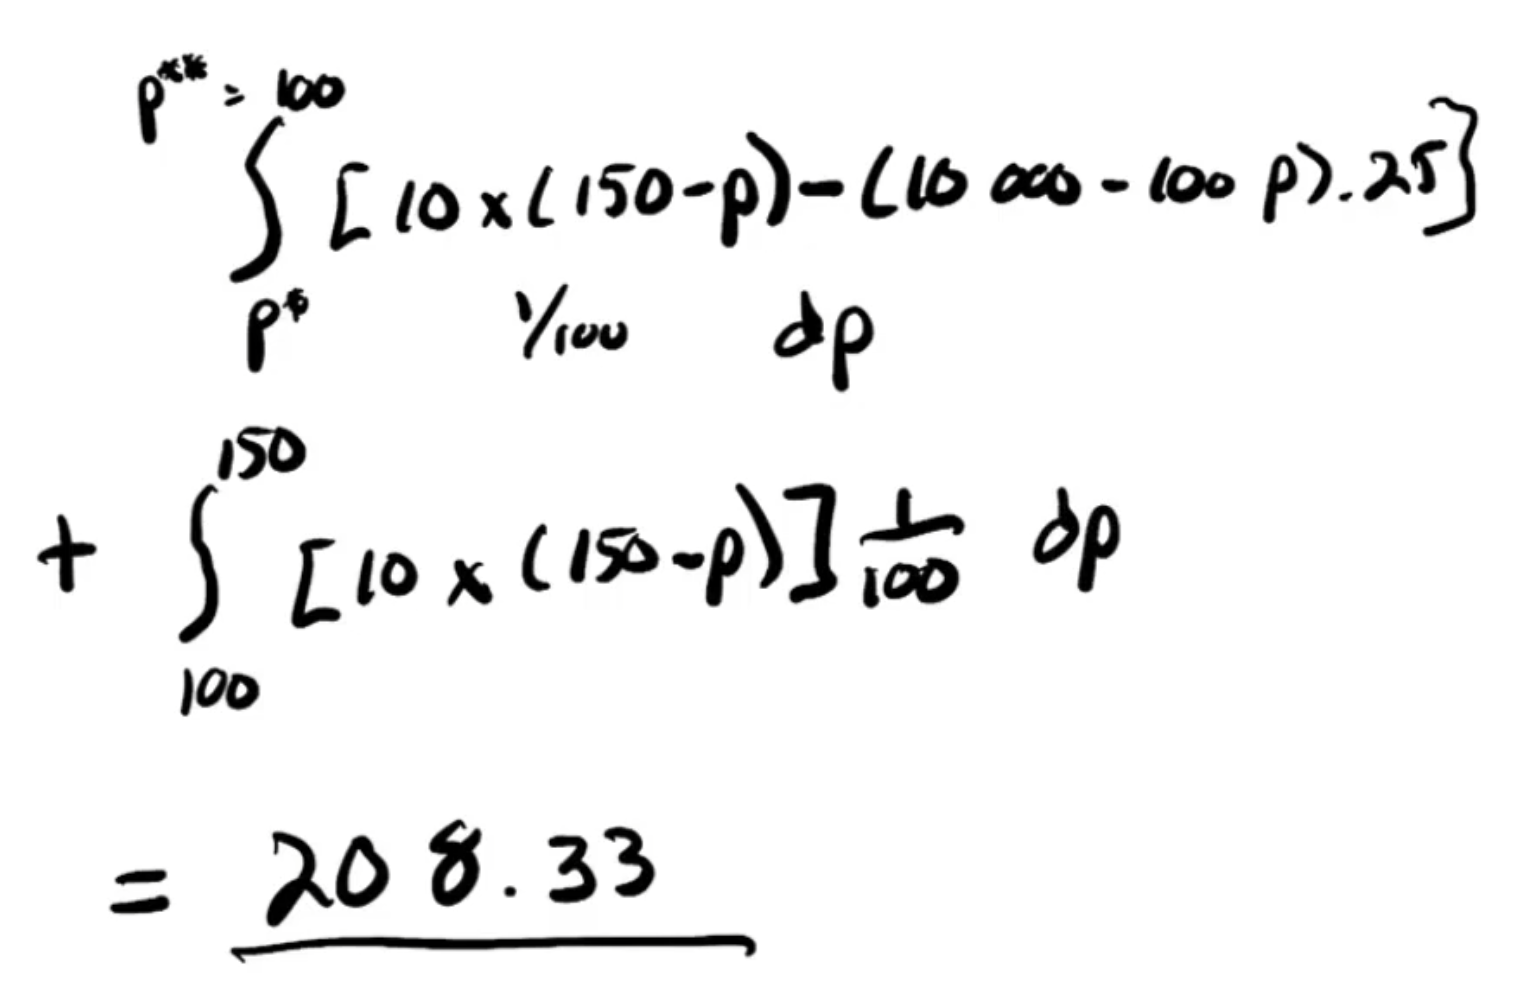 p** = 100
∫ [10 x (150-p) - (10 000 - 100 p).25]
p* 1/100 dp
150
+ ∫ [10 x (150-p)] 1/100 dp
100
= 208.33